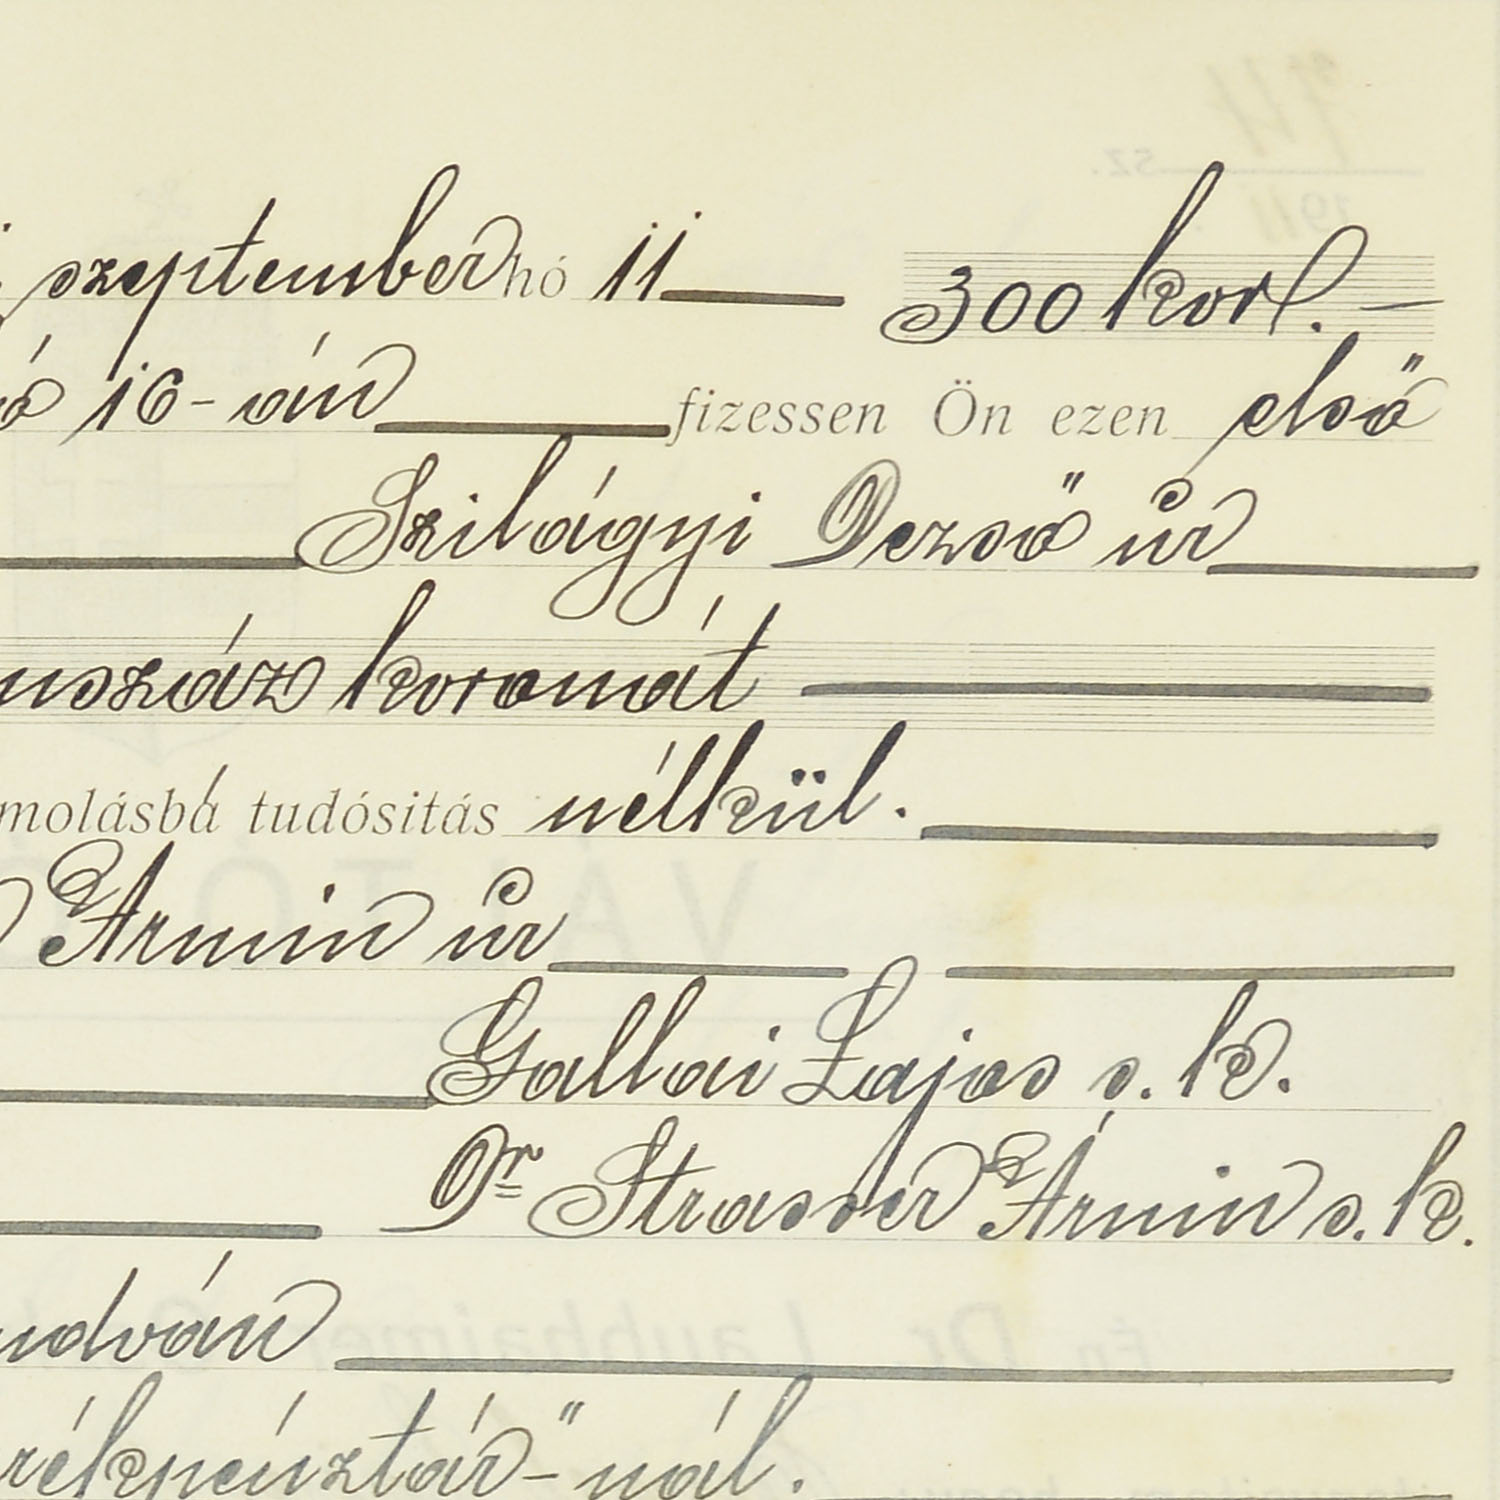 szeptember hó 11 300 kor.
16-án fizessen Ön ezen első
Szilágyi Dezső úr
száz koronát
molásba tudósitás nélkül.
Ármin úr
Gallai Lajos s. k.
Dr Strasser Ármin s. k.
udván
rékpénztár"-nál.